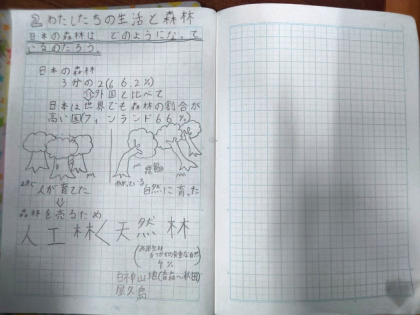 ２わたしたちの生活と森林
日本の森林は どのようになって
いるのだろう。
日本の森林
3分の2(66.2%)
外国と比べて
日本は世界でも森林の割合が
高い国(フィンランド66%)
人が育てた
自然に育った
森林を売るため
人工林<天然林
4%
白神山地(青森〜秋田)
屋久島